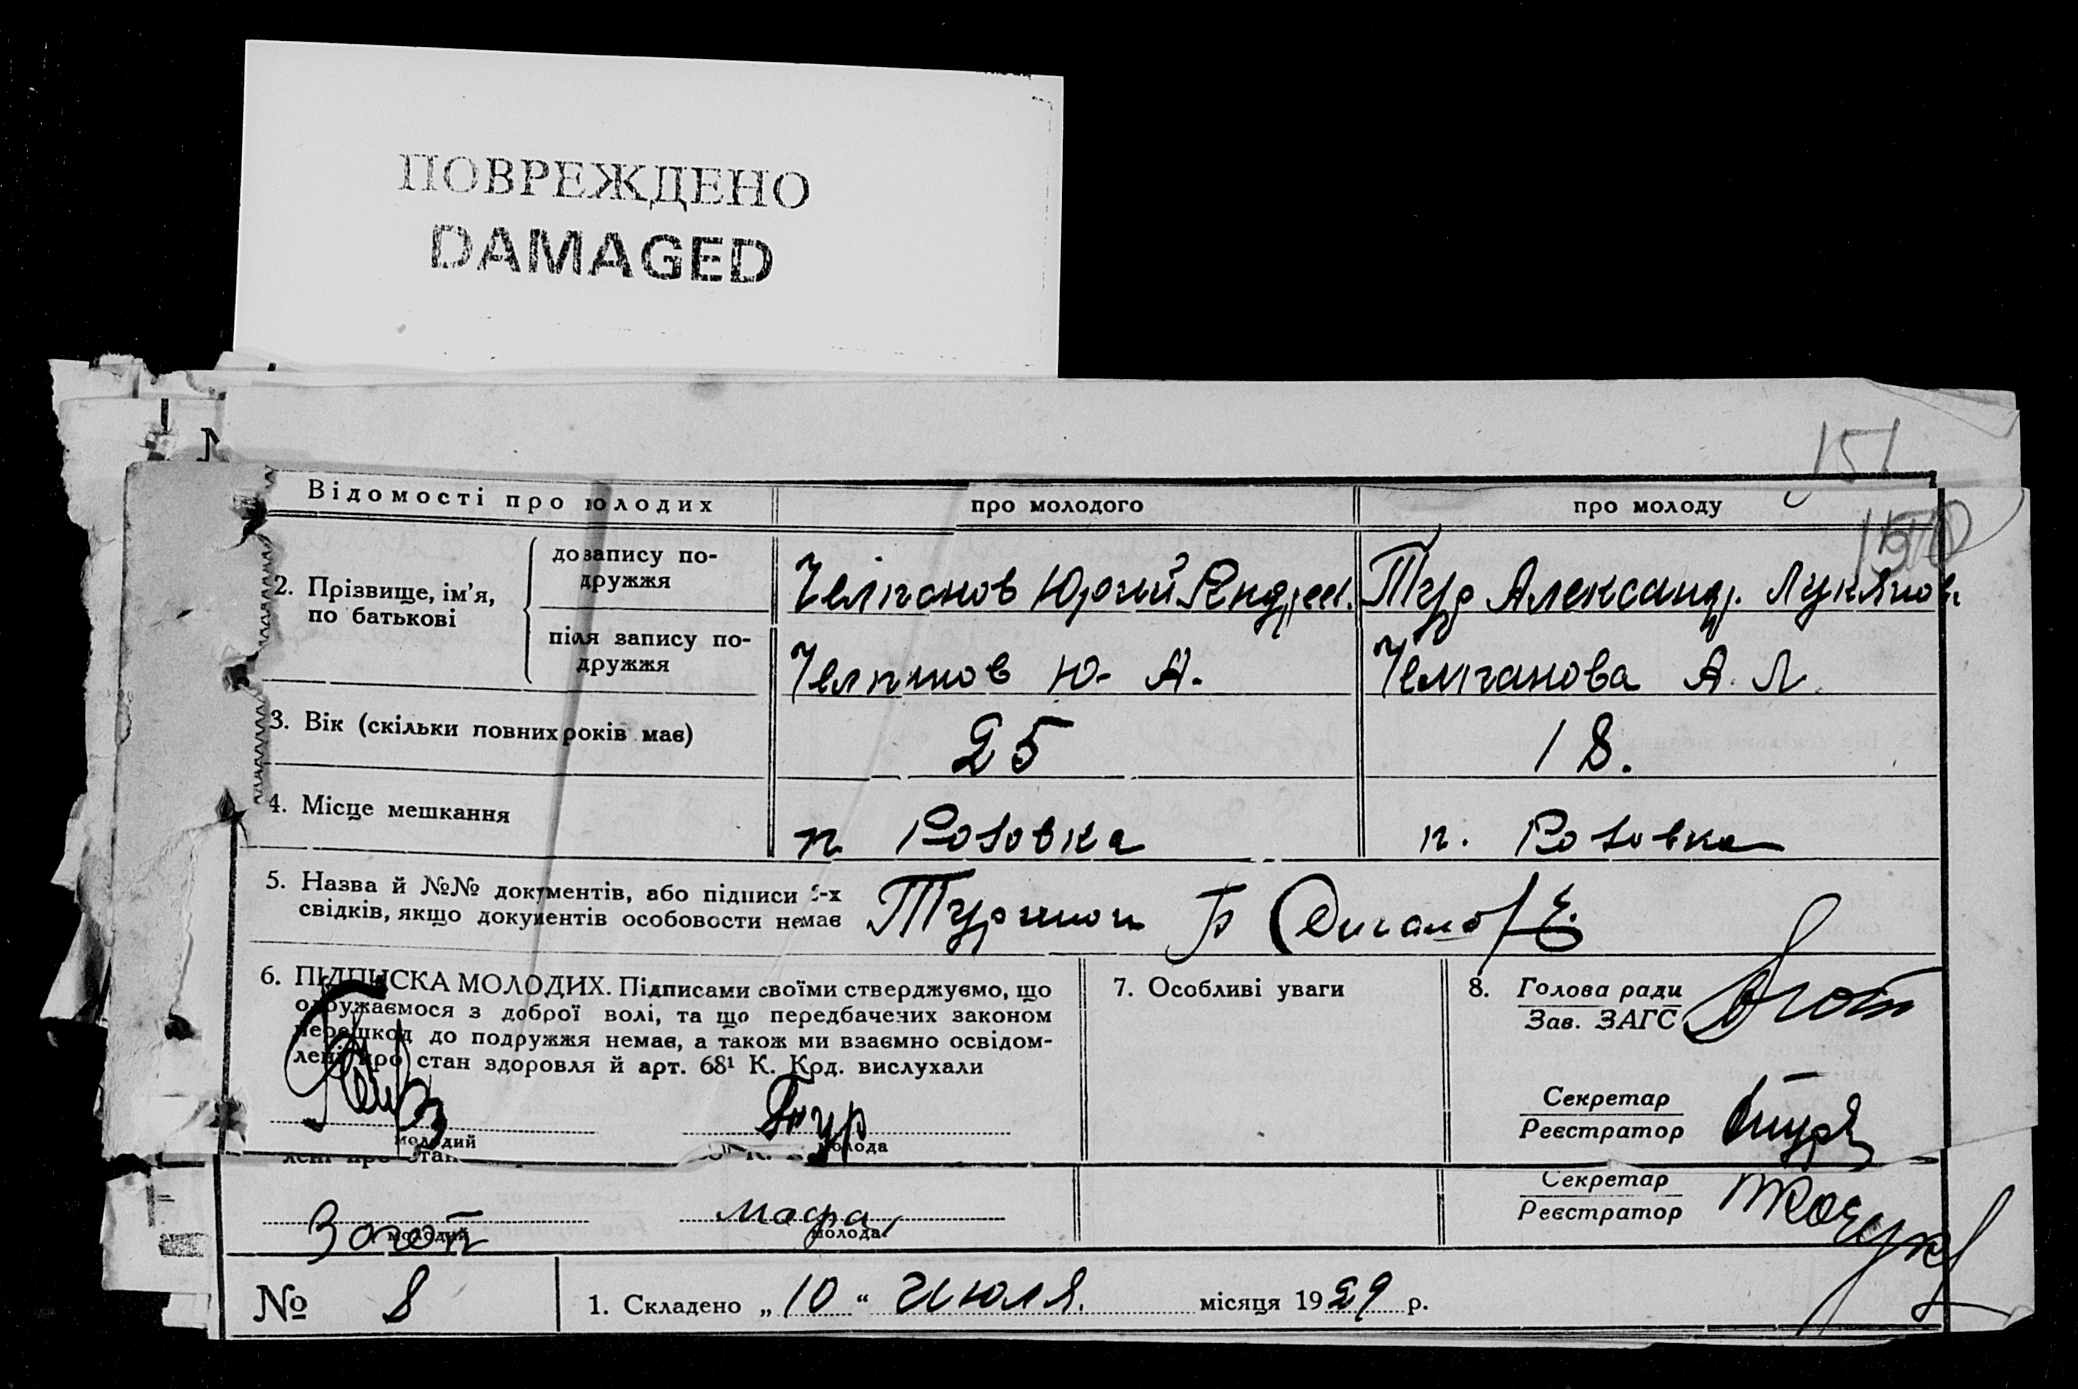 ПОВРЕЖДЕНО
DAMAGED
151
Відомості про молодих
про молодого
про молоду
2. Прізвище, ім'я,
по батькові
до запису по-
дружжя
Челпанов Юрий Андреев.
Тур Александр. Лукянов
після запису по-
дружжя
Челпанов Ю. А.
Челпанова А. Л.
3. Вік (скільки повних років має)
25
18.
4. Місце мешкання
п. Розовка
п. Розовка
5. Назва й №№ документів, або підписи 2-х
свідків, якщо документів особовости немає
6. ПІДПИСКА МОЛОДИХ. Підписами своїми стверджуємо, що
одружаємося з доброї волі, та що передбачених законом
перешкод до подружжя немає, а також ми взаємно освідом-
лені про стан здоровля й арт. 68¹ К. Крд. вислухали
Тур
молодий
молода
7. Особливі уваги
8. Голова ради
Зав. ЗАГС
Секретар
Реєстратор
лені про стан
молодий
молода
Секретар
Реєстратор
№ 8
1. Складено „10“ Июля. місяця 1929 р.